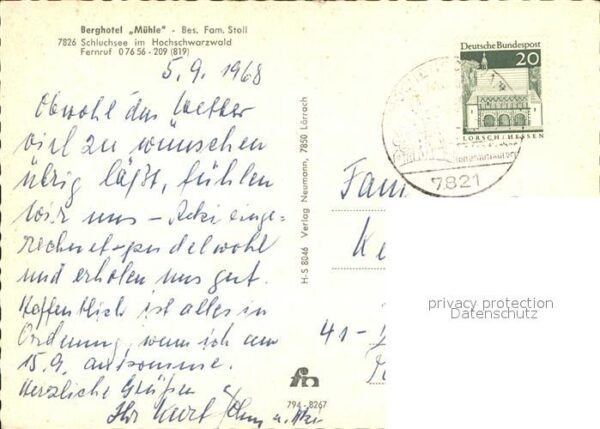 Berghotel „Mühle" - Bes. Fam. Stoll
7826 Schluchsee im Hochschwarzwald
Fernruf 0 76 56 - 209 (819)
5.9.1968
Obwohl das Wetter
viel zu wünschen
übrig läßt, fühlen
wir uns - Acki einge=
rechnet - pudelwohl
und erholen uns gut.
Hoffentlich ist alles in
Ordnung, wenn ich am
15.9. antkomme.
Herzliche Grüßen
Ihr Kurt u.
H-S 8046 Verlag Neumann, 7850 Lörrach
Deutsche Bundespost
20
LORSCH/HESSEN
7821
Fam
Ke
41-
privacy protection
Datenschutz
794 - 8267